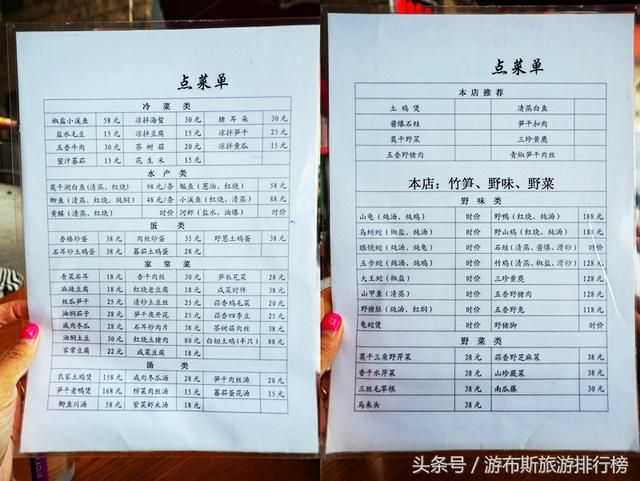 点菜单
冷 菜 类
椒盐小溪鱼 58元 凉拌海蜇 30元 猪耳朵 30元
盐水毛豆 15元 凉拌豆腐 15元 凉拌笋干 25元
五香牛肉 30元 茶树菇 20元 凉拌黄瓜 15元
蜜汁蕃茄 15元 花生米 15元
水 产 类
莫干湖白鱼(清蒸、红烧) 98元/条 鳊鱼(葱油、红烧) 58元
鲫鱼(清蒸、红烧、炖焖) 48元/条 小溪鱼(清蒸、红烧) 88元
黄鳝(红烧) 时价 河虾(盐水、油爆) 时价
蛋 类
香椿炒蛋 38元 肉丝炒蛋 35元 野葱土鸡蛋 38元
石耳炒土鸡蛋 38元 蕃茄土蛋 28元
家 常 菜
青菜石耳 18元 香干肉丝 30元 笋衣花菜 28元
麻辣豆腐 18元 红烧老豆腐 28元 咸菜时件 38元
丝瓜笋干 25元 清炒土豆丝 25元 蒜香鸡毛菜 20元
油焖茄子 28元 笋干夜开花 25元 蒜香四季豆 25元
咸肉冬瓜 28元 石耳炒肉片 38元 茶树菇肉丝 38元
油焖土豆 30元 红烧土猪肉 80元 白切土鸡(半只) 88元
家常豆腐 22元 咸菜豆腐 18元
汤 类
农家土鸡煲 158元 咸肉冬瓜汤 28元 笋干肉丝汤 20元
笋干老鸭煲 168元 榨菜肉丝汤 18元 蕃茄蛋花汤 15元
鲫鱼川汤 58元 紫菜虾米汤 18元
点菜单
本店推荐
土鸡煲 清蒸白鱼
酱爆石蛙 笋干扣肉
莫干野菜 三珍黄麂
五香野猪肉 青椒笋干肉丝
本店：竹笋、野味、野菜
野 味 类
山龟(炖汤、炖鸡) 时价 野鸭(红烧、炖汤) 188元
乌梢蛇(椒盐、炖汤) 时价 野山鸡(红烧、炖汤) 188元
眼镜蛇(炖汤、炖龟) 时价 石蛙(清蒸、酱爆、滑炒) 时价
五步蛇(炖汤、炖鸡) 时价 竹鸡(清蒸、椒盐、滑炒) 128元
大王蛇(椒盐) 时价 三珍黄麂 128元
山甲鱼(清蒸) 时价 五香野猪肉 128元
野猪肚(炖汤、红焖) 时价 五香野兔 118元
龟蛇煲 时价 野猪脚 时价
野 菜 类
莫干三角野芹菜 38元 蒜香野芝麻菜 38元
香干水芹菜 38元 山珍蕨菜 38元
三丝毛草根 38元 南瓜藤 30元
马来头 38元
头条号／游布斯旅游排行榜